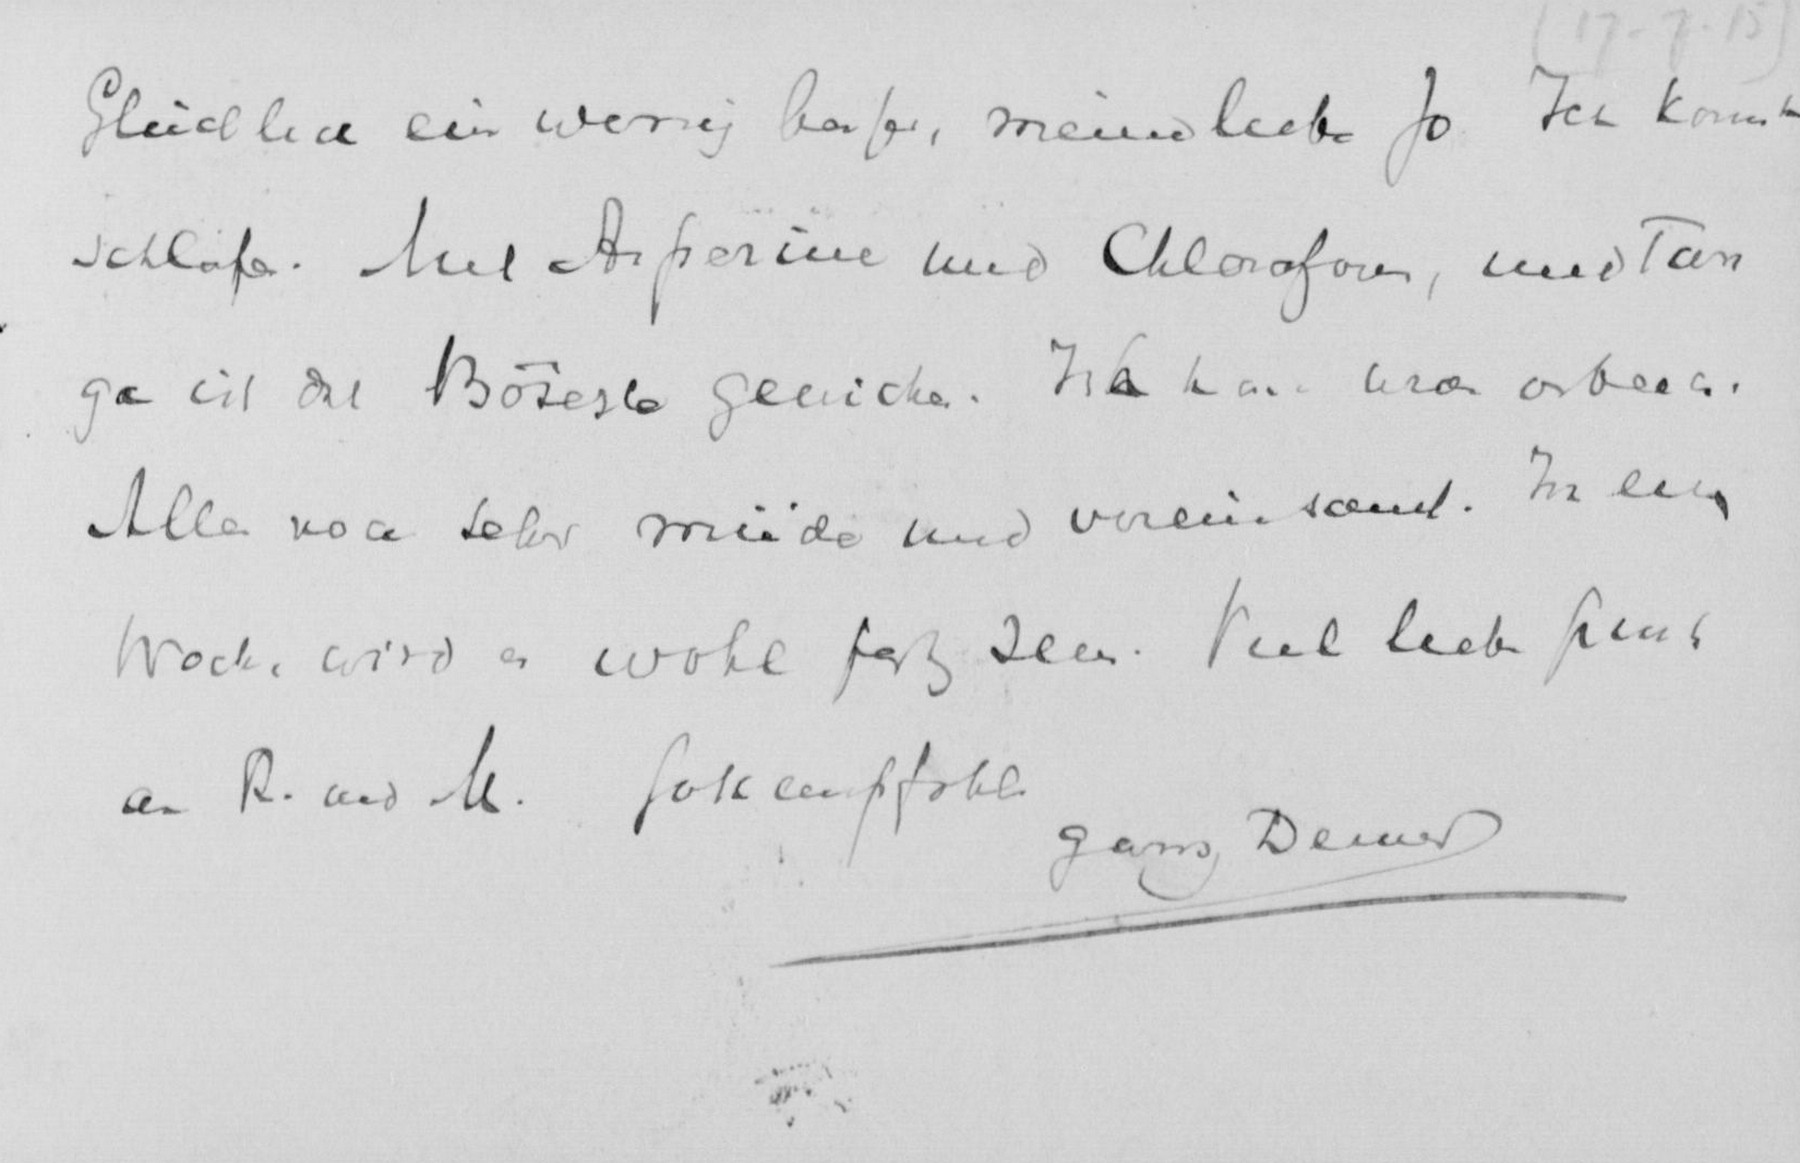 (17-7-15)
Glücklich ein wenig besser, meine liebe Jo Ich konnte
schlafen. Mit Asperine und Chloroform, und Tan
ga ist das Böseste gewichen. Ich kann arbeiten.
Alles noch sehr müde und vereinsamt. In ein
Woche wird es wohl fertig sein. Viel liebe Grüsse
an R. und M. Gott empfohlen
ganz Deiner